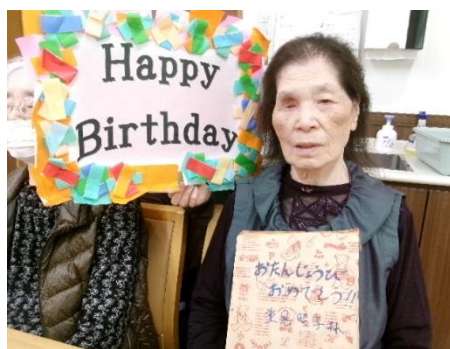 Happy
Birthday
おたんじょうび
おめでとう!!